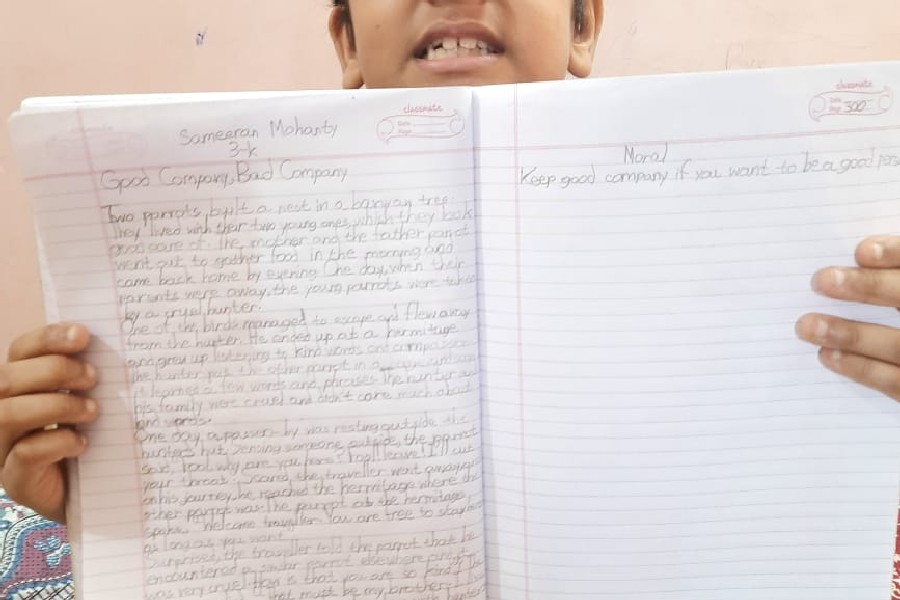 classmate
Date
Page
Sameeran Mohanty
3-k
Good Company, Bad Company
Two parrots built a nest in a banyan tree.
They lived with their two young ones, which they took
good care of. The mother and the father parrot
went out to gather food in the morning and
came back home by evening. One day, when their
parents were away, the young parrots were taken
by a cruel hunter.
One of the birds managed to escape and flew away
from the hunter. He ended up at a hermitage
and grew up listening to kind words and compassion
the hunter put the other parrot in a
learned a few words and phrases. The hunter and
his family were cruel and didn't care much about
kind words.
One day, a passer-by was resting outside the
hunter's hut. Sensing someone outside, the parrot
said, fool, why are you here? leave! I'll cut
your throat. Scared, the traveller went away
on his journey, he reached the hermitage where the
other parrot was. The parrot at the hermitage
spoke. Welcome traveller You are free to stay
as long as you want.
Surprised, the traveller told the parrot that he
encountered a similar parrot elsewhere and it
was very cruel. is that you are so kind? The
that must be my brother
classmate
Date
Page 300
Moral
Keep good company if you want to be a good